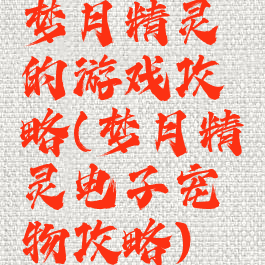 梦月精灵
的游戏攻
略(梦月精
灵电子宠
物攻略)